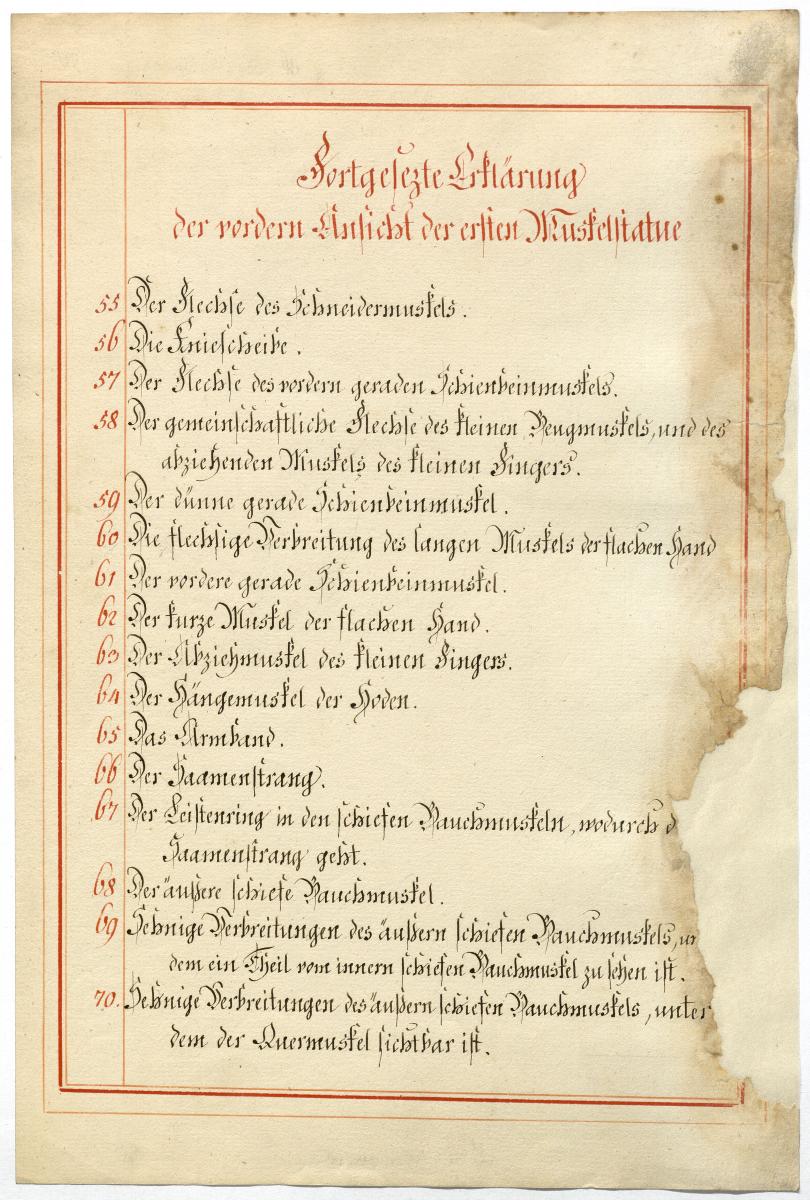 Fortgesezte Erklärung
der vordern Ansicht der ersten Muskelstatue
55 Der Flechse des Schneidermuskels.
56 Die Kniescheibe.
57 Der Flechse des vordern geraden Schienbeinmuskels.
58 Der gemeinschaftliche Flechse des kleinen Beugmuskels, und des
abziehenden Muskels des kleinen Fingers.
59 Der dünne gerade Schienbeinmuskel.
60 Die flechsige Verbreitung des langen Muskels der flachen Hand
61 Der vordere gerade Schienbeinmuskel.
62 Der kurze Muskel der flachen Hand.
63 Der Abziehmuskel des kleinen Fingers.
64 Der Hängemuskel der Hoden.
65 Das Armband.
66 Der Saamenstrang.
67 Der Leistenring in den schiefen Bauchmuskeln, wodurch d
Saamenstrang geht.
68 Der äußere schiefe Bauchmuskel.
69 Sehnige Verbreitungen des äußern schiefen Bauchmuskels, un
dem ein Theil vom innern schiefen Bauchmuskel zu sehen ist.
70. Sehnige Verbreitungen des äußern schiefen Bauchmuskels, unter
dem der Quermuskel sichtbar ist.